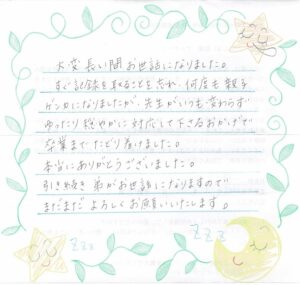 大変長い間お世話になりました。
すぐ記録を取ることを忘れ、何度も親子
ゲンカになりましたが、先生がいつも変わらず
ゆったり穏やかに対応して下さるおかげで
卒業までたどり着けました。
本当にありがとうございました。
引き続き弟がお世話になりますので
まだまだよろしくお願いいたします。
ZZZ
ZZZ